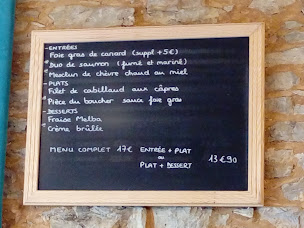 -ENTRÉES
Foie gras de canard (suppl +5€)
Duo de saumon (fumé et mariné)
Mesclun de chèvre chaud au miel
-PLATS
Filet de cabillaud aux câpres
Pièce du boucher sauce foie gras
-DESSERTS
Fraise Melba
Crème brûlée
MENU COMPLET 17€ ENTRÉE + PLAT
ou
PLAT + DESSERT
13€90